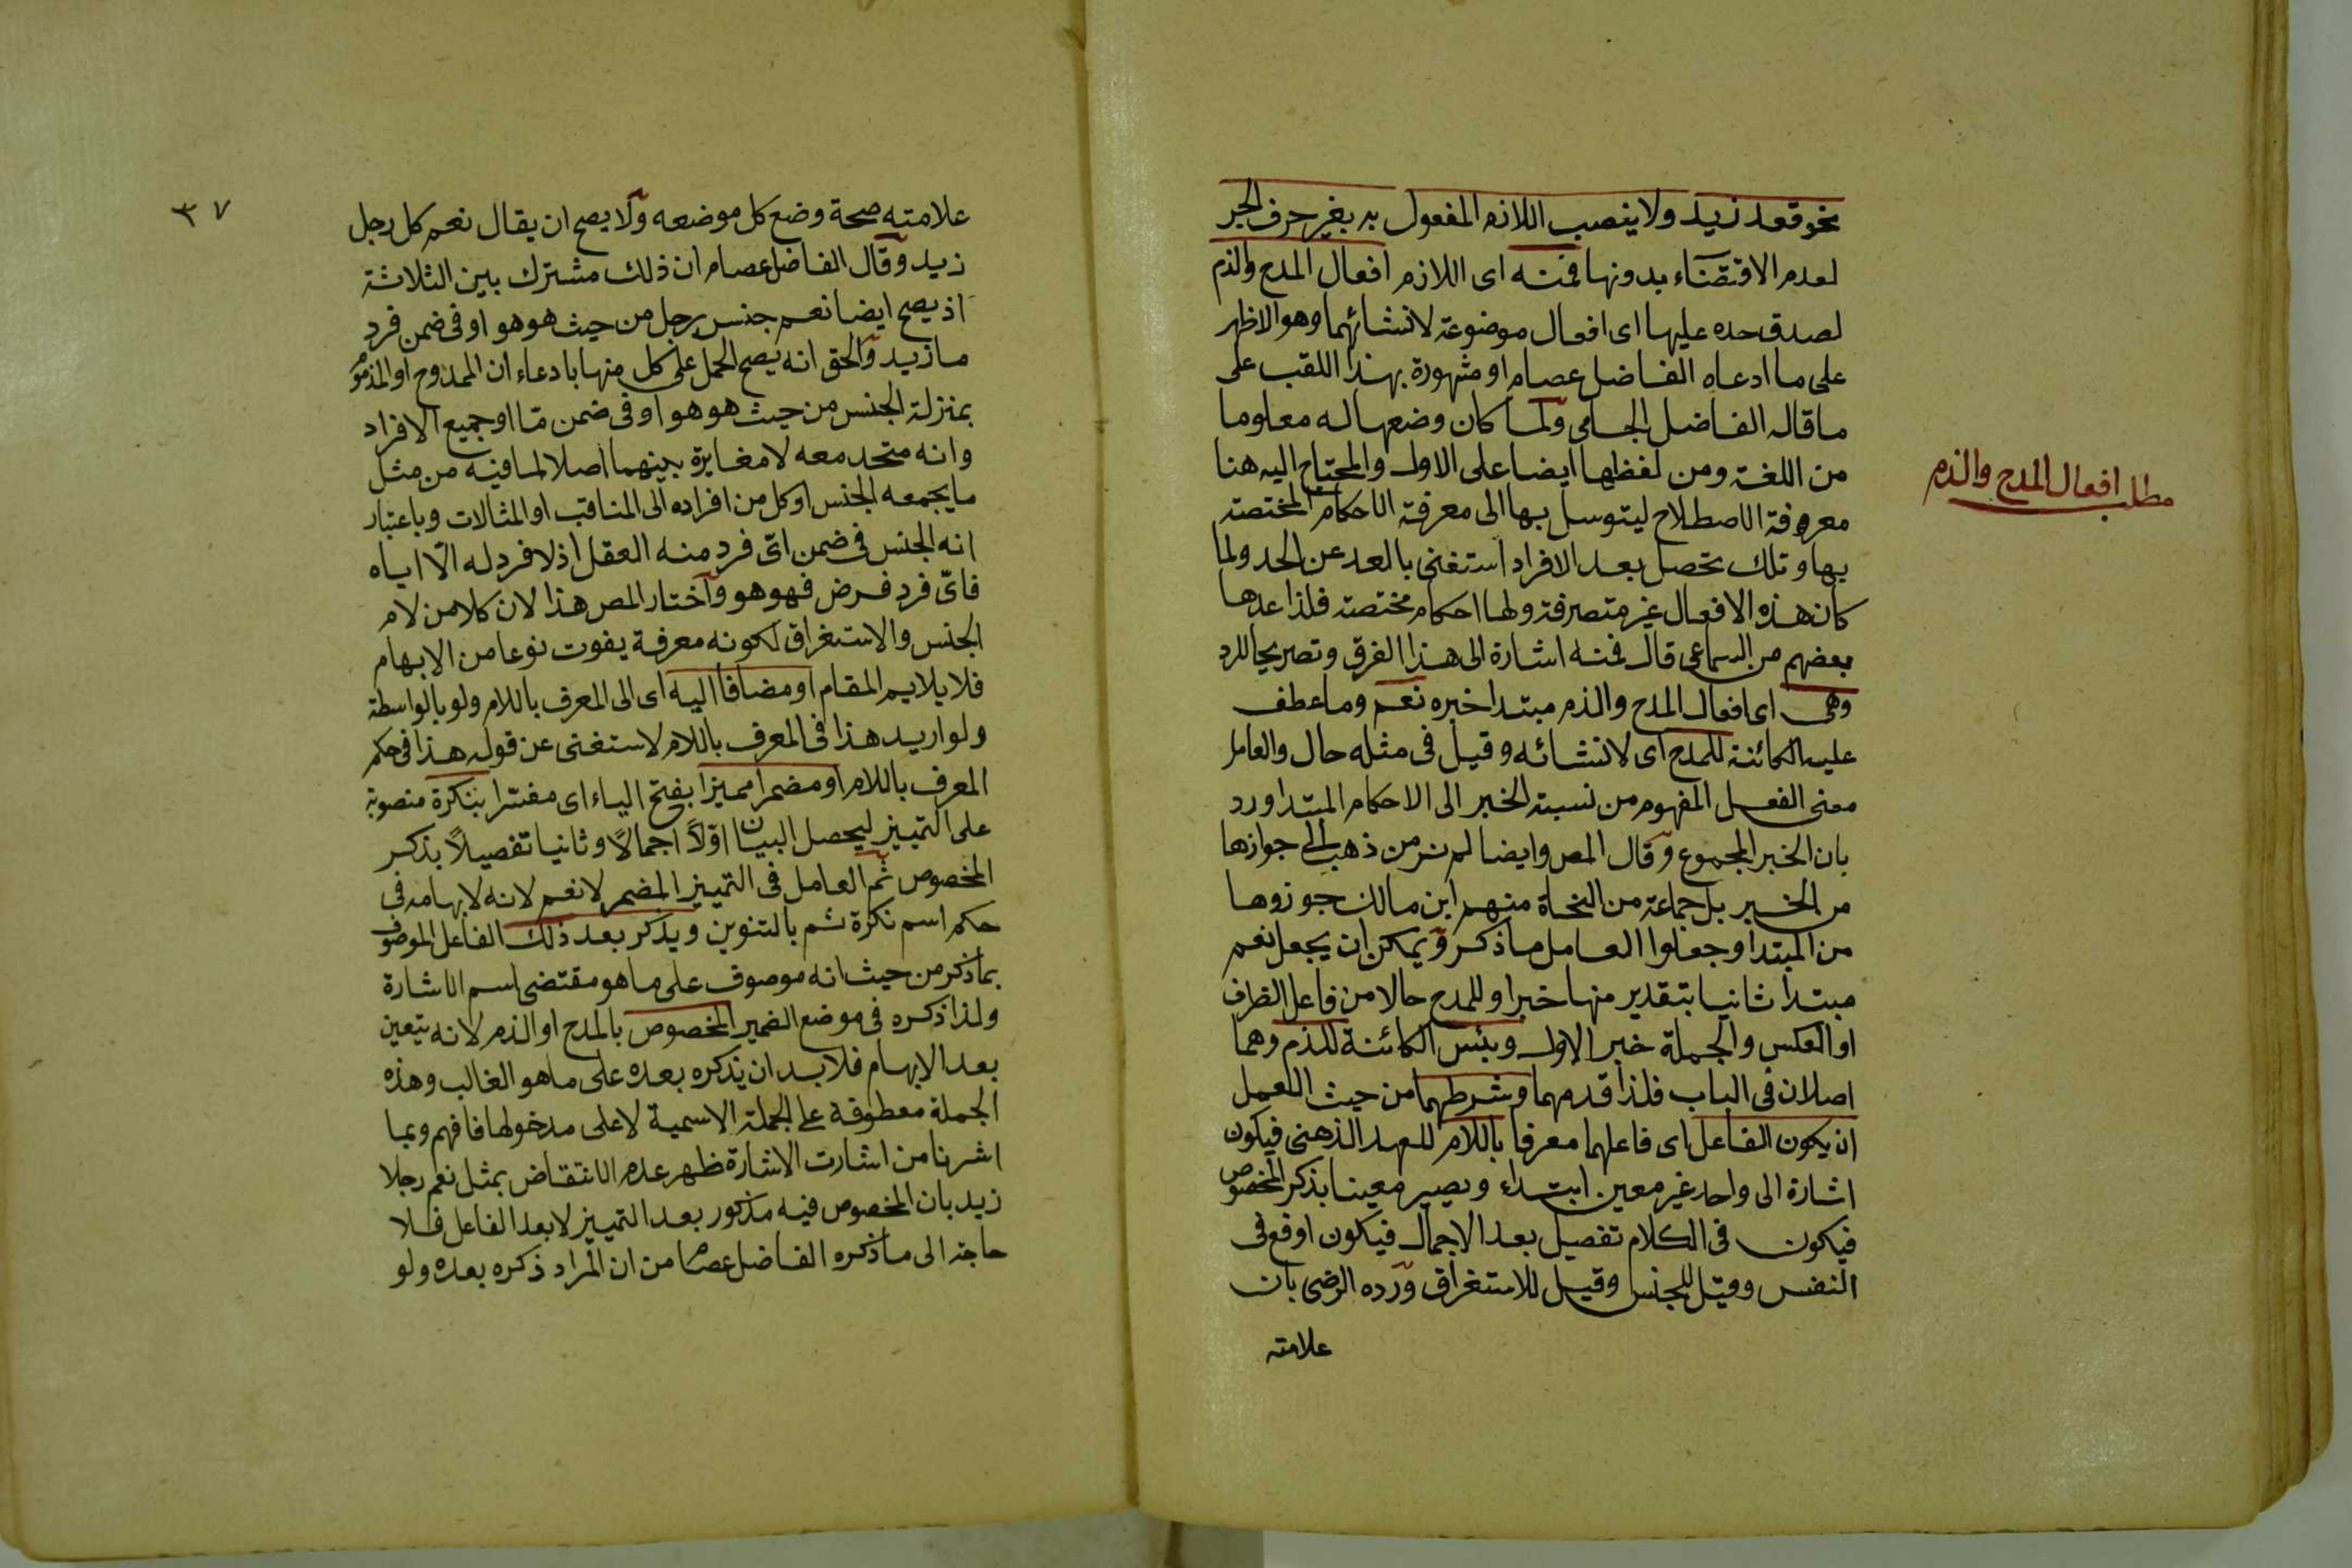 نحو قعد زيد ولا ينصب اللازم المفعول به بغير حرف الجر
لعدم الاقتضاء بدونها فمنه اى اللازم افعال المدح والذم
لصدق حده عليها اى افعال موضوعة لانشائهما وهو الاظهر
على ما ادعاه الفاضل عصام او مشهورة بهذا اللقب على
ما قاله الفاضل الجامى ولما كان وضعها له معلوما
من اللغة ومن لفظها ايضا على الاول والمحتاج اليه هنا
معرفة الاصطلاح ليتوسل بها الى معرفة الاحكام المختصة
بها وتلك تحصل بعد الافراد استغنى بالعد عن الحد ولما
كان هذه الافعال غير متصرفة ولها احكام مختصة فلذا عدها
بعضهم من السماعى قال فمنه اشارة الى هذا الفرق وتصريحا للرد
وهى اى افعال المدح والذم مبتدا خبره نعم وما عطف
عليه الكائنة للمدح اى لانشائه وقيل فى مثله حال والعامل
معنى الفعل المفهوم من نسبة الخبر الى الاحكام المبتدا ورد
بان الخبر المجموع وقال المص وايضا لم نر من ذهب الى جوازها
من الخبر بل جماعة من النحاة منهم ابن مالك جوزوها
من المبتدا وجعلوا العامل ما ذكر ويمكن ان يجعل نعم
مبتدا ثانيا بتقدير منها خبرا وللمدح حالا من فاعل الظرف
او العكس والجملة خبر الاول وبئس الكائنة للذم وهما
اصلان فى الباب فلذا قدمهما وشرطهما من حيث العمل
ان يكون الفاعل اى فاعلهما معرفا باللام للعهد الذهنى فيكون
اشارة الى واحد غير معين ابتداء ويصير معينا بذكر المخصوص
فيكون فى الكلام تفصيل بعد الاجمال فيكون اوقع فى
النفس وقيل للجنس وقيل للاستغراق ورده الرضى بان
علامته
مطلب افعال المدح والذم
٣٧
علامته صحة وضع كل موضعه ولا يصح ان يقال نعم كل رجل
زيد وقال الفاضل عصام ان ذلك مشترك بين الثلاثة
اذ يصح ايضا نعم جنس رجل من حيث هو هو او فى ضمن فرد
ما زيد والحق انه يصح الحمل على كل منها بادعاء ان الممدوح او المذموم
بمنزلة الجنس من حيث هو هو او فى ضمن ما او جميع الافراد
وانه متحد معه لا مغايرة بينهما اصلا لما فيه من مثل
ما يجمعه الجنس او كل من افراده الى المناقب او المثالات وباعتبار
انه الجنس فى ضمن اىّ فرد منه العقل اذ لا فرد له الّا اياه
فاىّ فرد فرض فهو هو واختار المص هذا لان كلا من لام
الجنس والاستغراق لكونه معرفة يفوت نوعا من الابهام
فلا يلايم المقام او مضافا اليه اى الى المعرف باللام ولو بالواسطة
ولو اريد هذا فى المعرف باللام لاستغنى عن قوله هذا فى حكم
المعرف باللام او مضمرا مميزا بفتح الياء اى مفسرا بنكرة منصوبة
على التمييز ليحصل البيان اوّلاً اجمالاً وثانيا تفصيلاً بذكر
المخصوص ثم العامل فى التمييز المضمر لا نعم لانه لابهامه فى
حكم اسم نكرة تم بالتنوين ويذكر بعد ذلك الفاعل الموصوف
بما ذكر من حيث انه موصوف على ما هو مقتضى اسم الاشارة
ولذا ذكره فى موضع الضمير المخصوص بالمدح او الذم لانه يتعين
بعد الابهام فلا بد ان يذكره بعده على ما هو الغالب وهذه
الجملة معطوفة على الجملة الاسمية لا على مدخولها فافهم وبما
اشرنا من اشارت الاشارة ظهر عدم الانتقاض بمثل نعم رجلا
زيد بان المخصوص فيه مذكور بعد التمييز لا بعد الفاعل فلا
حاجة الى ما ذكره الفاضل عصام من ان المراد ذكره بعده ولو